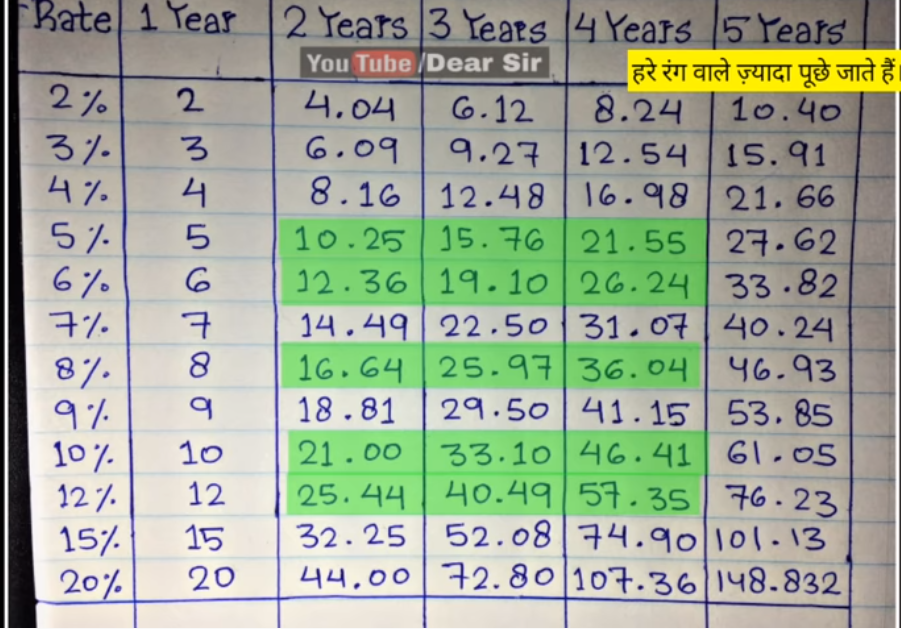 Rate 1 Year 2 Years 3 Years 4 Years 5 Years
YouTube /Dear Sir
हरे रंग वाले ज़्यादा पूछे जाते हैं।
2% 2 4.04 6.12 8.24 10.40
3% 3 6.09 9.27 12.54 15.91
4% 4 8.16 12.48 16.98 21.66
5% 5 10.25 15.76 21.55 27.62
6% 6 12.36 19.10 26.24 33.82
7% 7 14.49 22.50 31.07 40.24
8% 8 16.64 25.97 36.04 46.93
9% 9 18.81 29.50 41.15 53.85
10% 10 21.00 33.10 46.41 61.05
12% 12 25.44 40.49 57.35 76.23
15% 15 32.25 52.08 74.90 101.13
20% 20 44.00 72.80 107.36 148.832